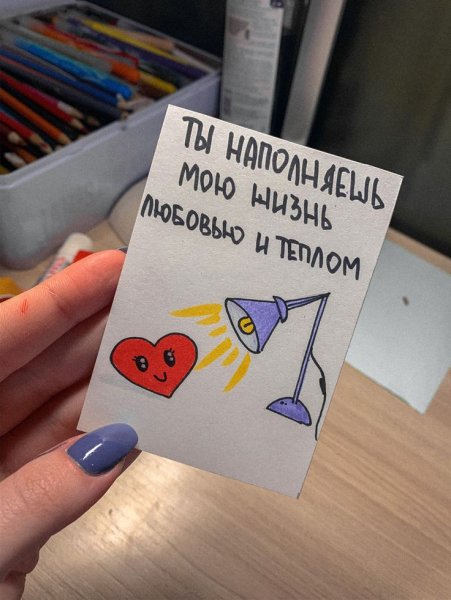 ТЫ НАПОЛНЯЕШЬ
МОЮ ЖИЗНЬ
ЛЮБОВЬЮ И ТЕПЛОМ